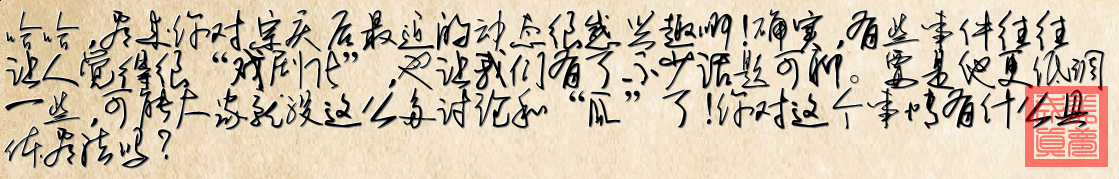 哈哈，看来你对宗庆后最近的动态很感兴趣啊！确实，有些事件往往
让人觉得很“戏剧化”，也让我们有了不少话题可聊。要是他更低调
一些，可能大家就没这么多讨论和“瓜”了！你对这个事情有什么具
体看法吗？